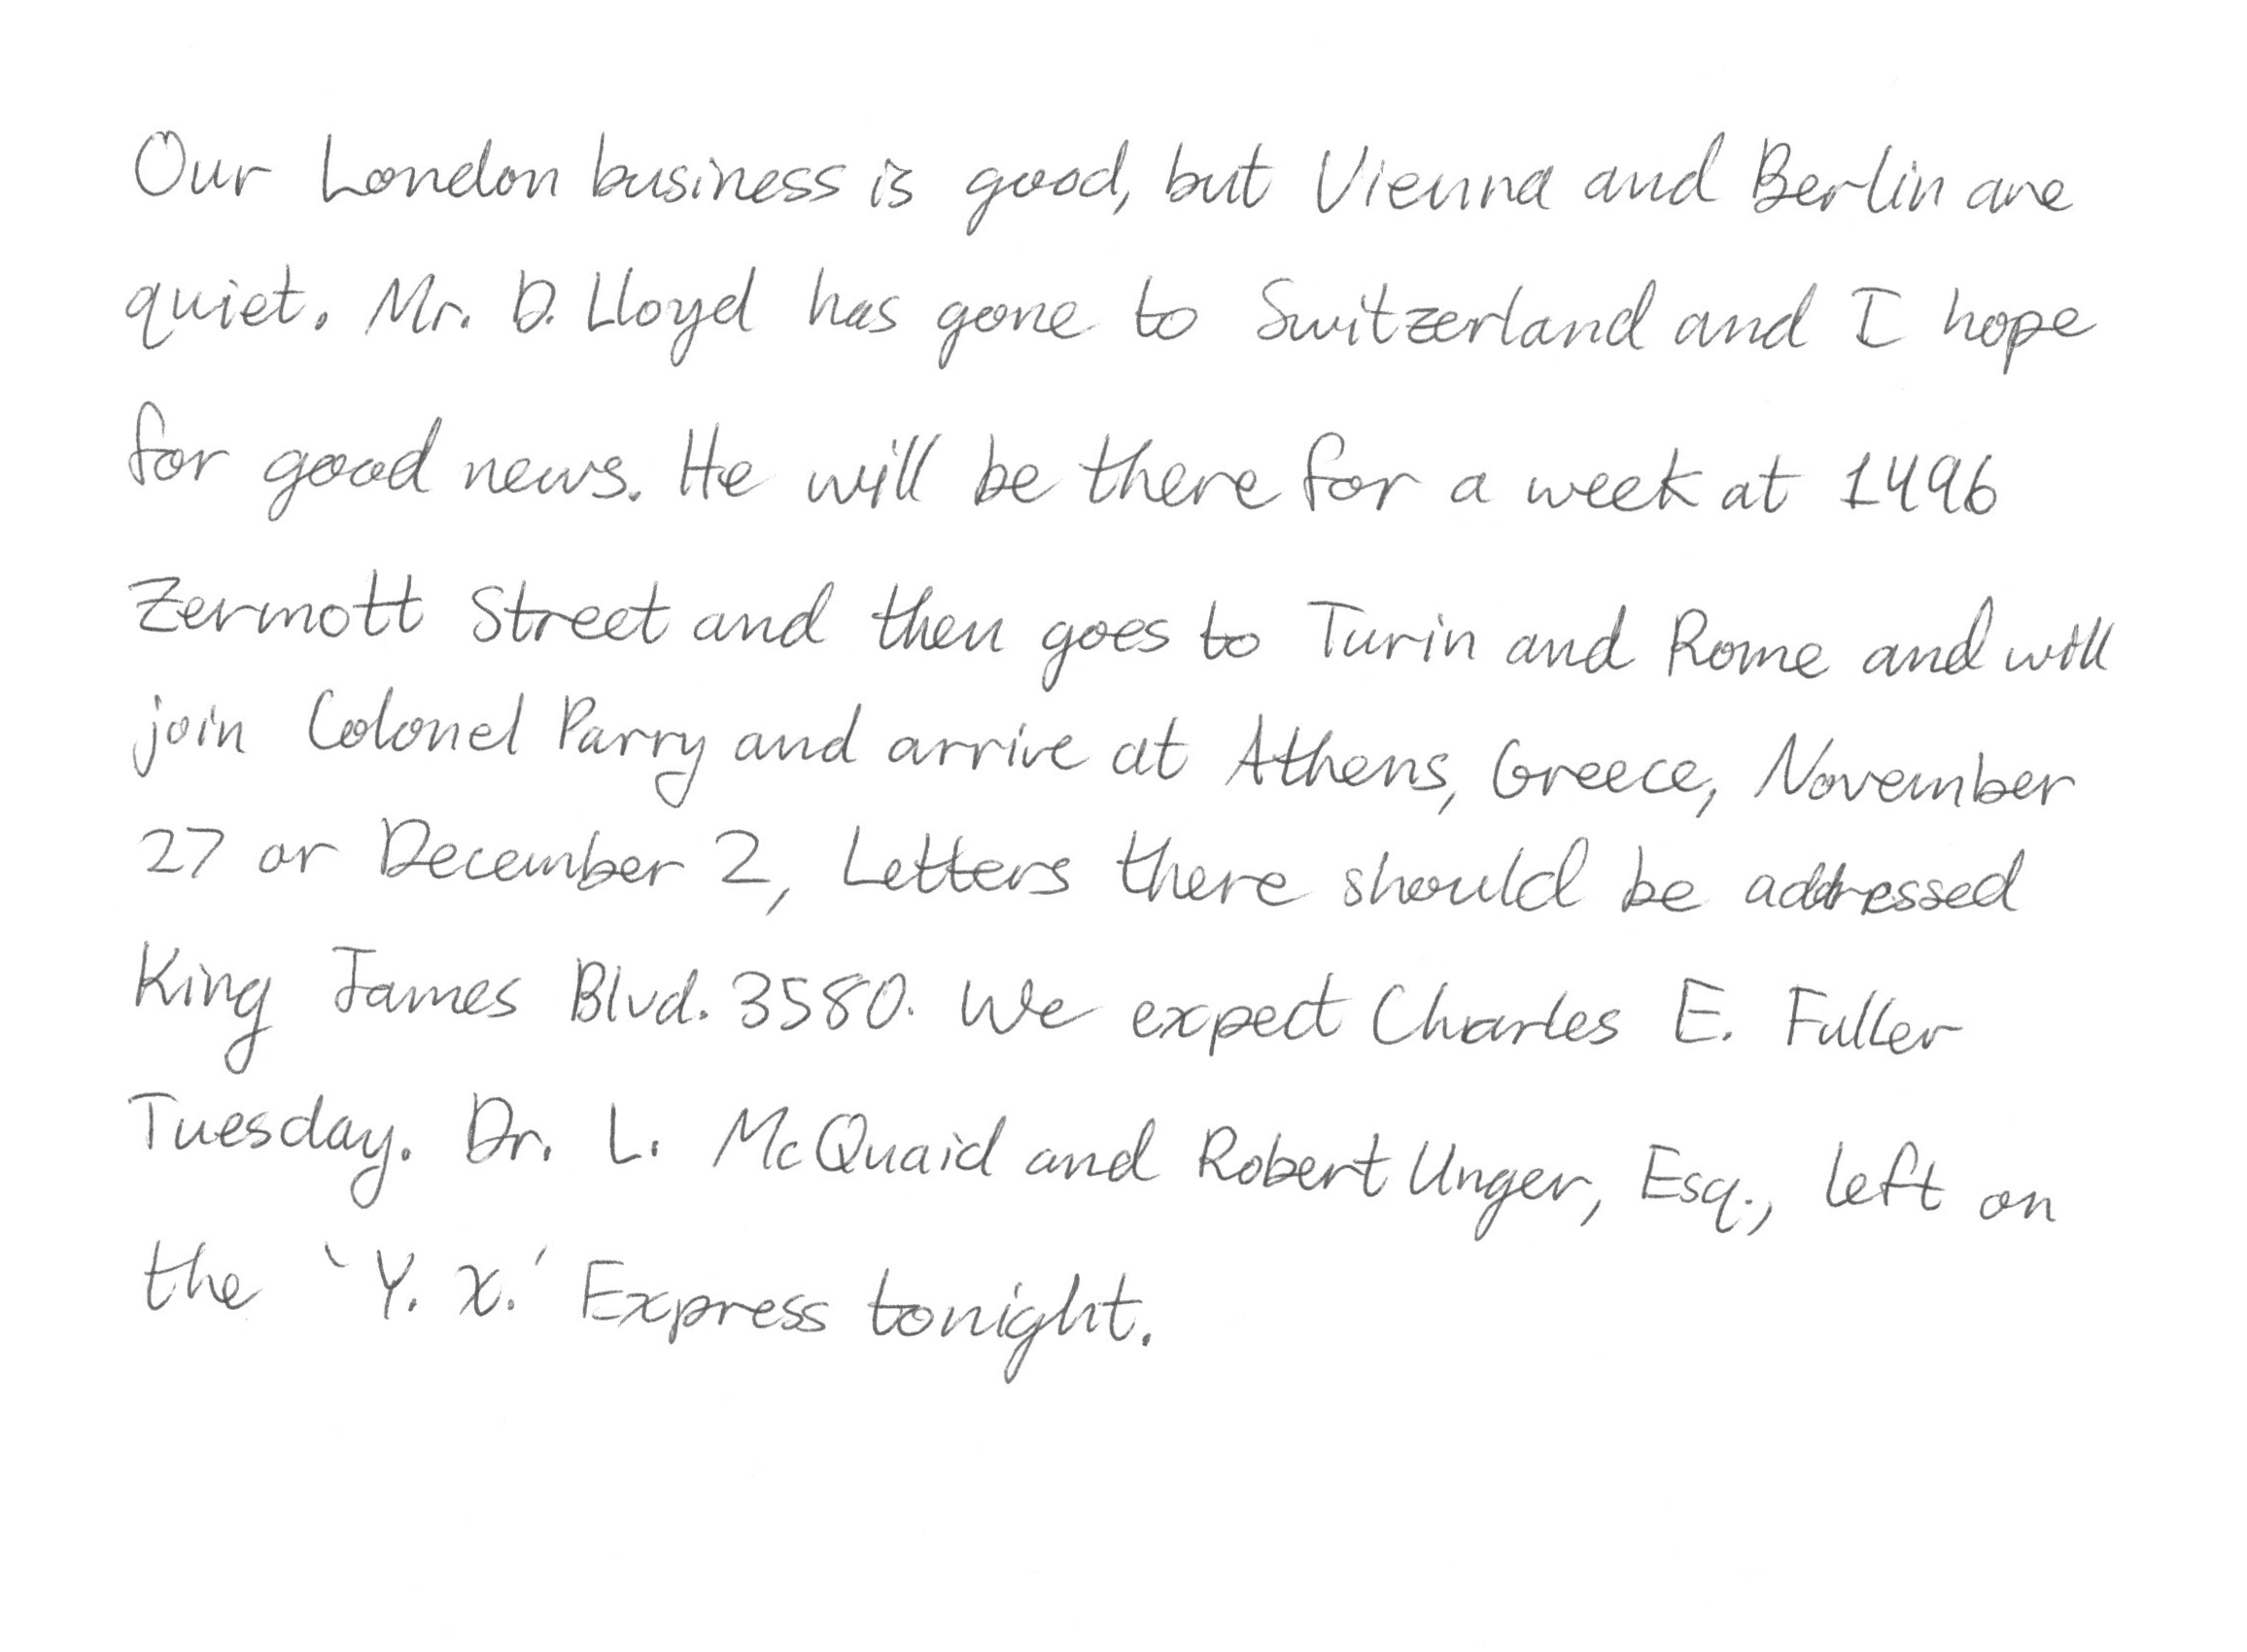 Our London business is good, but Vienna and Berlin are
quiet. Mr. D. Lloyd has gone to Switzerland and I hope
for good news. He will be there for a week at 1496
Zermott Street and then goes to Turin and Rome and will
join Colonel Parry and arrive at Athens, Greece, November
27 or December 2, Letters there should be addressed
King James Blvd. 3580. We expect Charles E. Fuller
Tuesday. Dr. L. McQuaid and Robert Unger, Esq., left on
the `Y. X.' Express tonight.